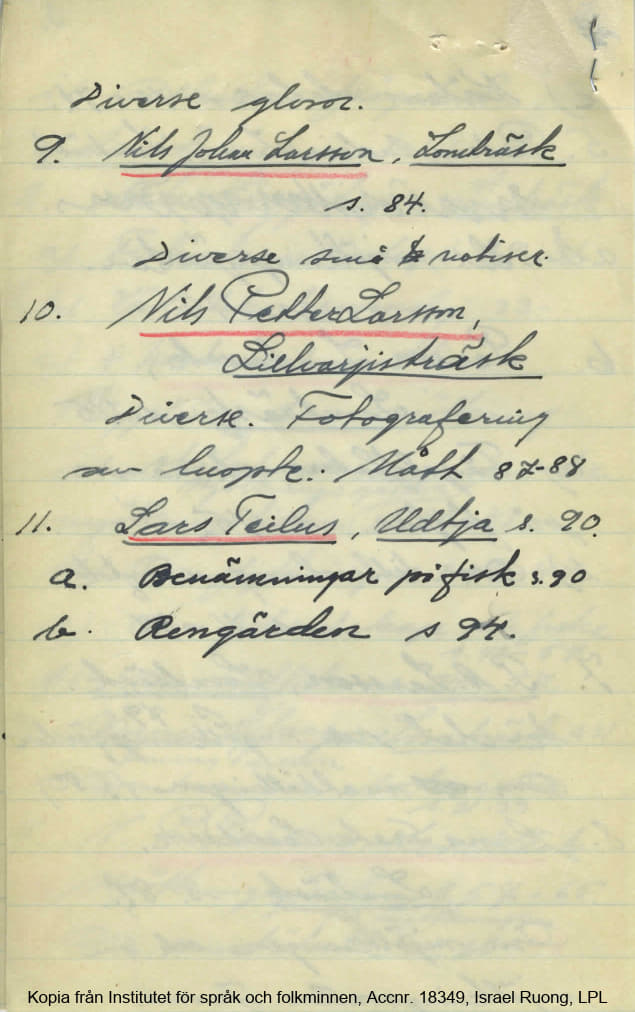 Diverse glosor.
9. Nils Johan Larsson, Lomträsk
s. 84.
Diverse små notiser.
10. Nils Petter Larsson,
Lillvarjisträsk
Diverse. Fotografering
av luopte. Mått 87-88
11. Lars Teilus, Udtja s. 90.
a. Benämningar på fisk s. 90
b. Rengärden s 94.
Kopia från Institutet för språk och folkminnen, Accnr. 18349, Israel Ruong, LPL